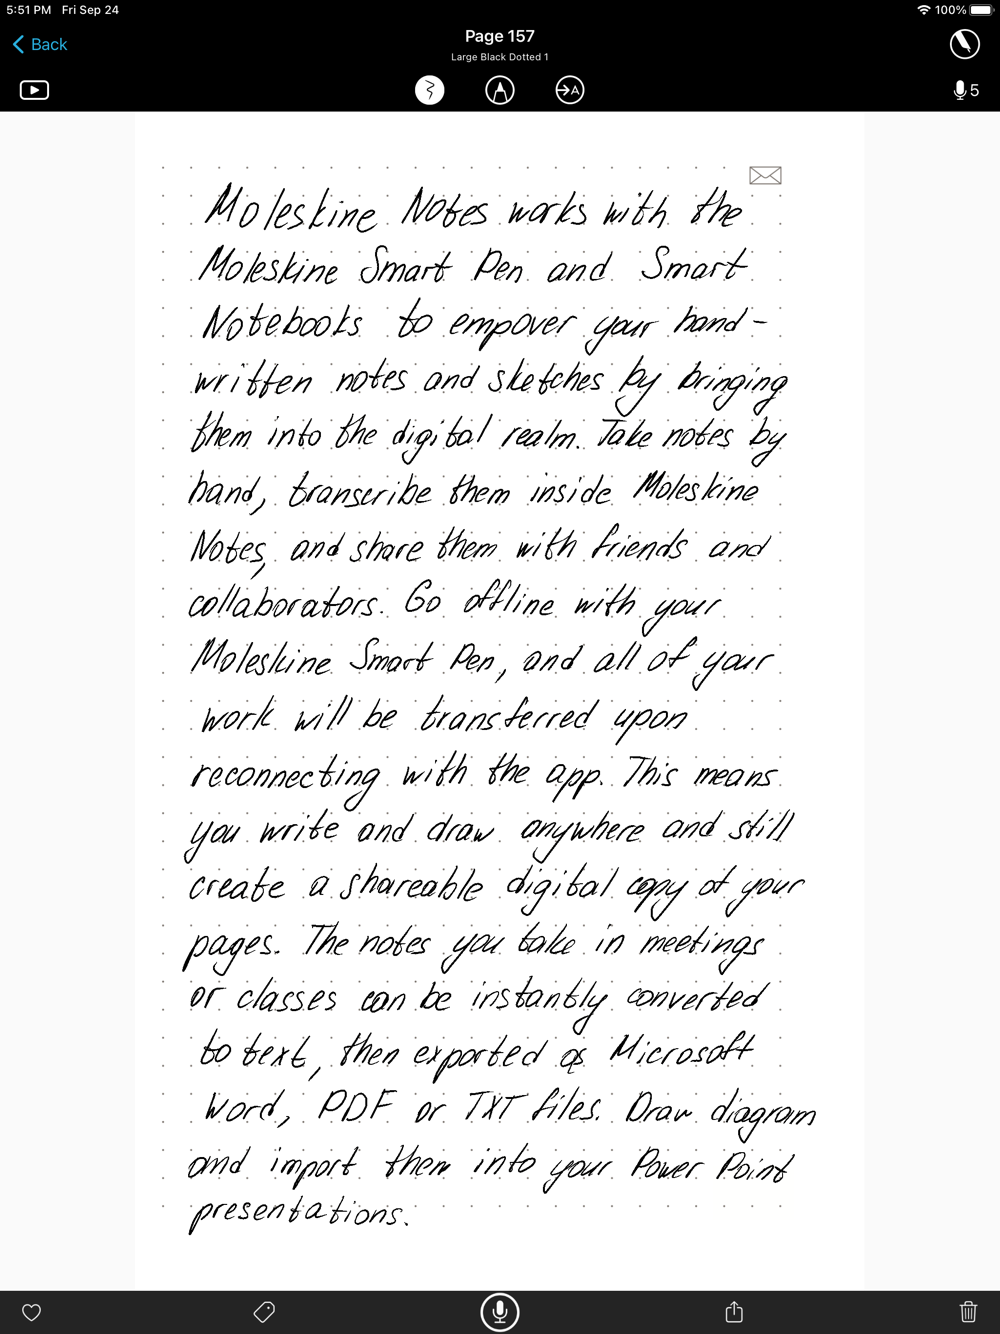 5:51 PM Fri Sep 24 100%
Back
Page 157
Large Black Dotted 1
A
5
Moleskine Notes works with the
Moleskine Smart Pen and Smart
Notebooks to empover your hand-
written notes and sketches by bringing
them into the digital realm. Take notes by
hand, transcribe them inside Moleskine
Notes, and share them with friends and
collaborators. Go offline with your
Moleskine Smart Pen, and all of your
work will be transferred upon
reconnecting with the app. This means
you write and draw anywhere and still
create a shareable digital copy of your
pages. The notes you take in meetings
or classes can be instantly converted
to text, then exported as Microsoft
Word, PDF or TXT files. Draw diagram
and import them into your Power Point
presentations.